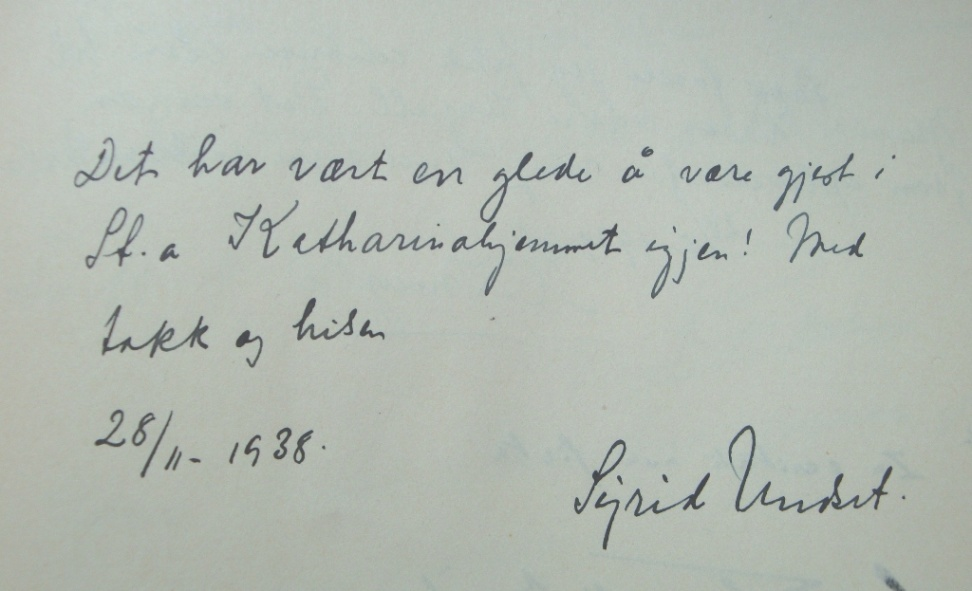 Det har vært en glede å være gjest i
St.a Katharinahjemmet igjen! Med
takk og hilsen
28/11- 1938.
Sigrid Undset.